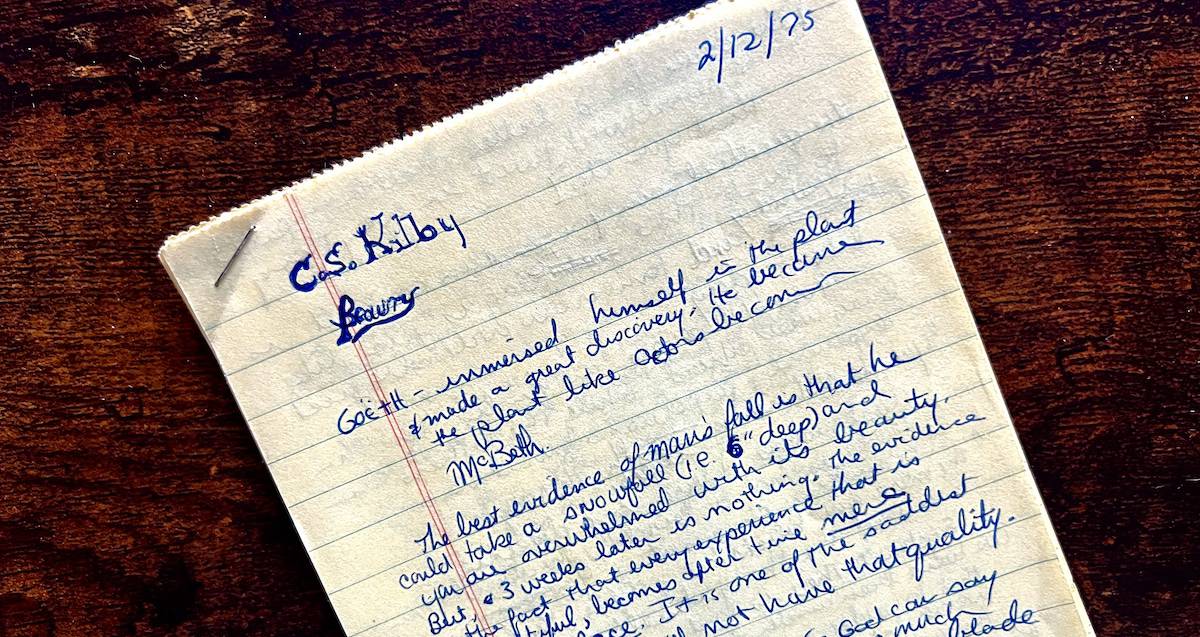 2/12/75
C.S. Kilby
Goëth - immersed himself in the plant
& made a great discovery. He became
the plant like actors become
McBeth.
The best evidence of man's fall is that he
could take a snowfall (i.e. 6" deep) and
you are overwhelmed with its beauty.
But, 3 weeks later is nothing. The evidence
the fact that every experience that is
tiful, becomes after time mere
ce. It is one of the saddest
not have that quality.
God can say
much
blade